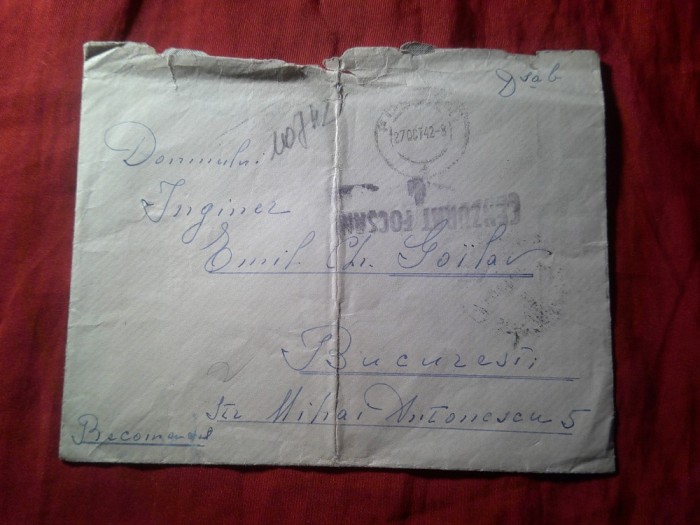 10742
27 OCT 42-8
CENZURAT FOCȘANI
Domnului
Inginer
Emil Ch. Goïlav
București
Str Mihai Antonescu 5
Recomandat